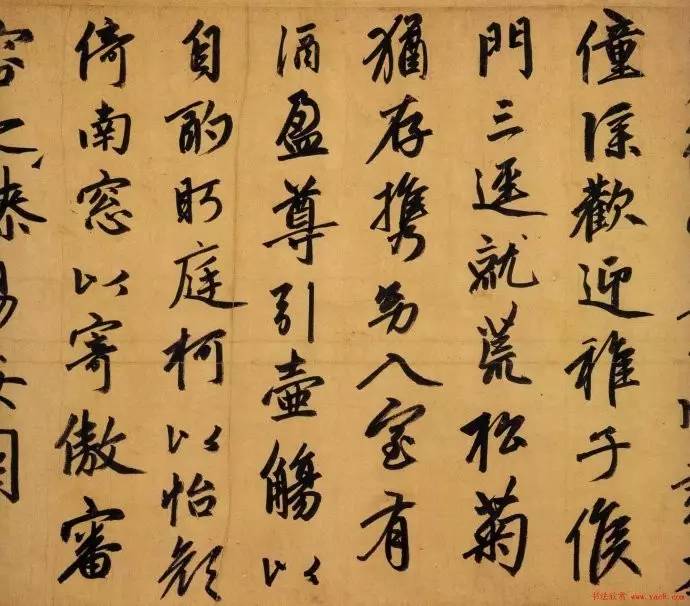 僮僕歡迎稚子候
門三逕就荒松菊
猶存攜幼入室有
酒盈尊引壺觴以
自酌眄庭柯以怡顏
倚南窓以寄傲審
容之易安園
书法欣赏 www.yac8.com